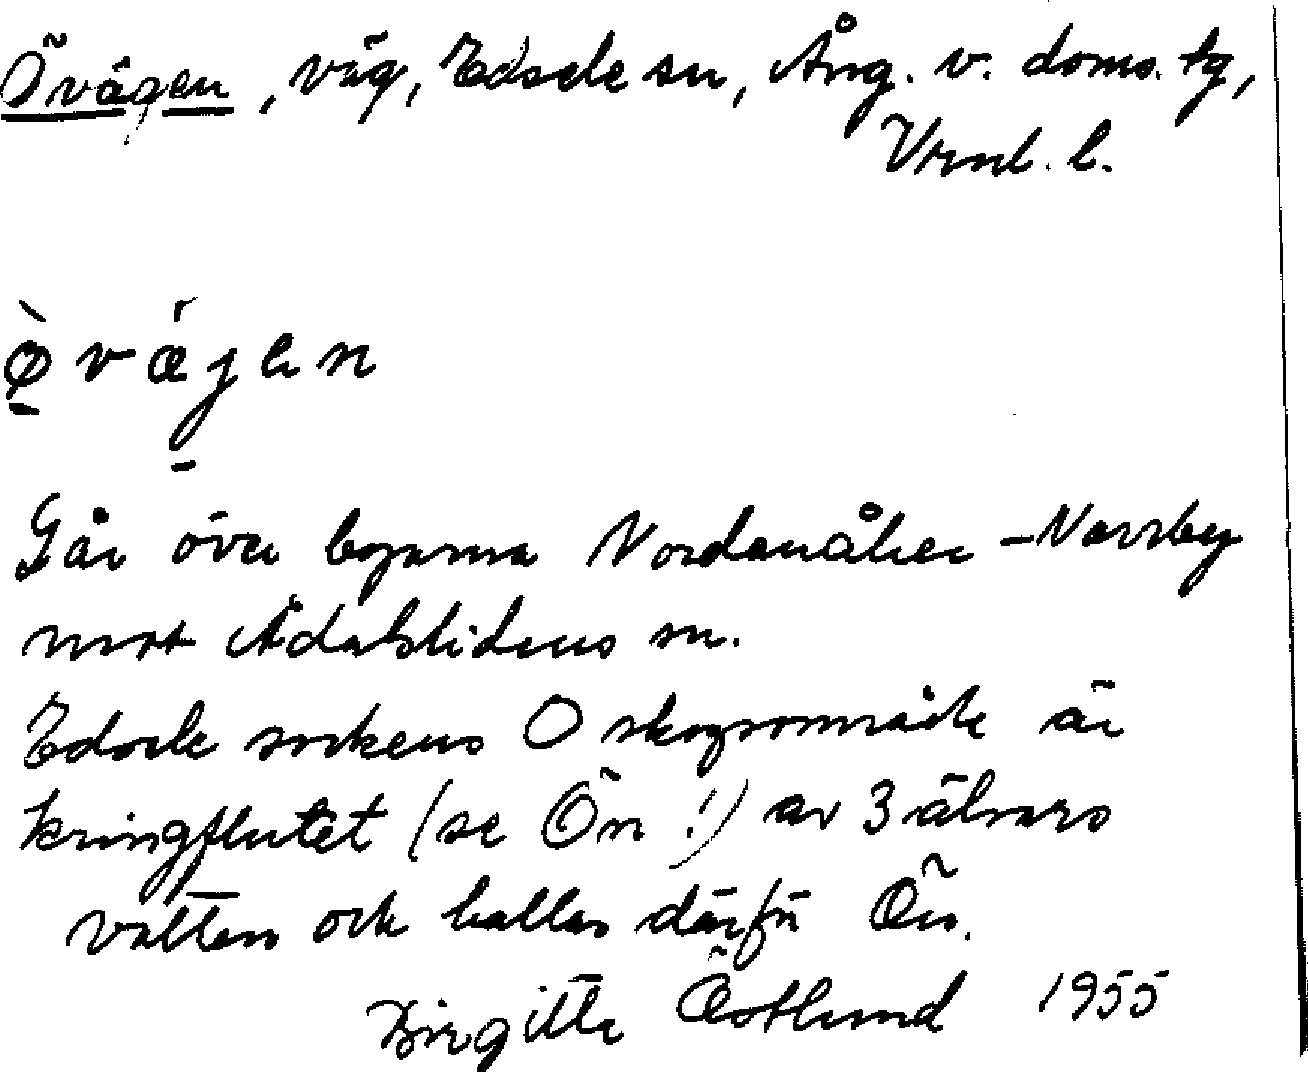 Övägen, väg, Edsele sn, Ång. v. doms. tg,
Vrnl. l.
ø̀ v ǽ j e n
Går över byarna Nordanåker - Norrby
mot Ådalslidens sn.
Edsele sockens O skogsområde är
kringflutet (se Ön!) av 3 älvars
vatten och kallas därför Ön.
Birgitta Östlund 1955